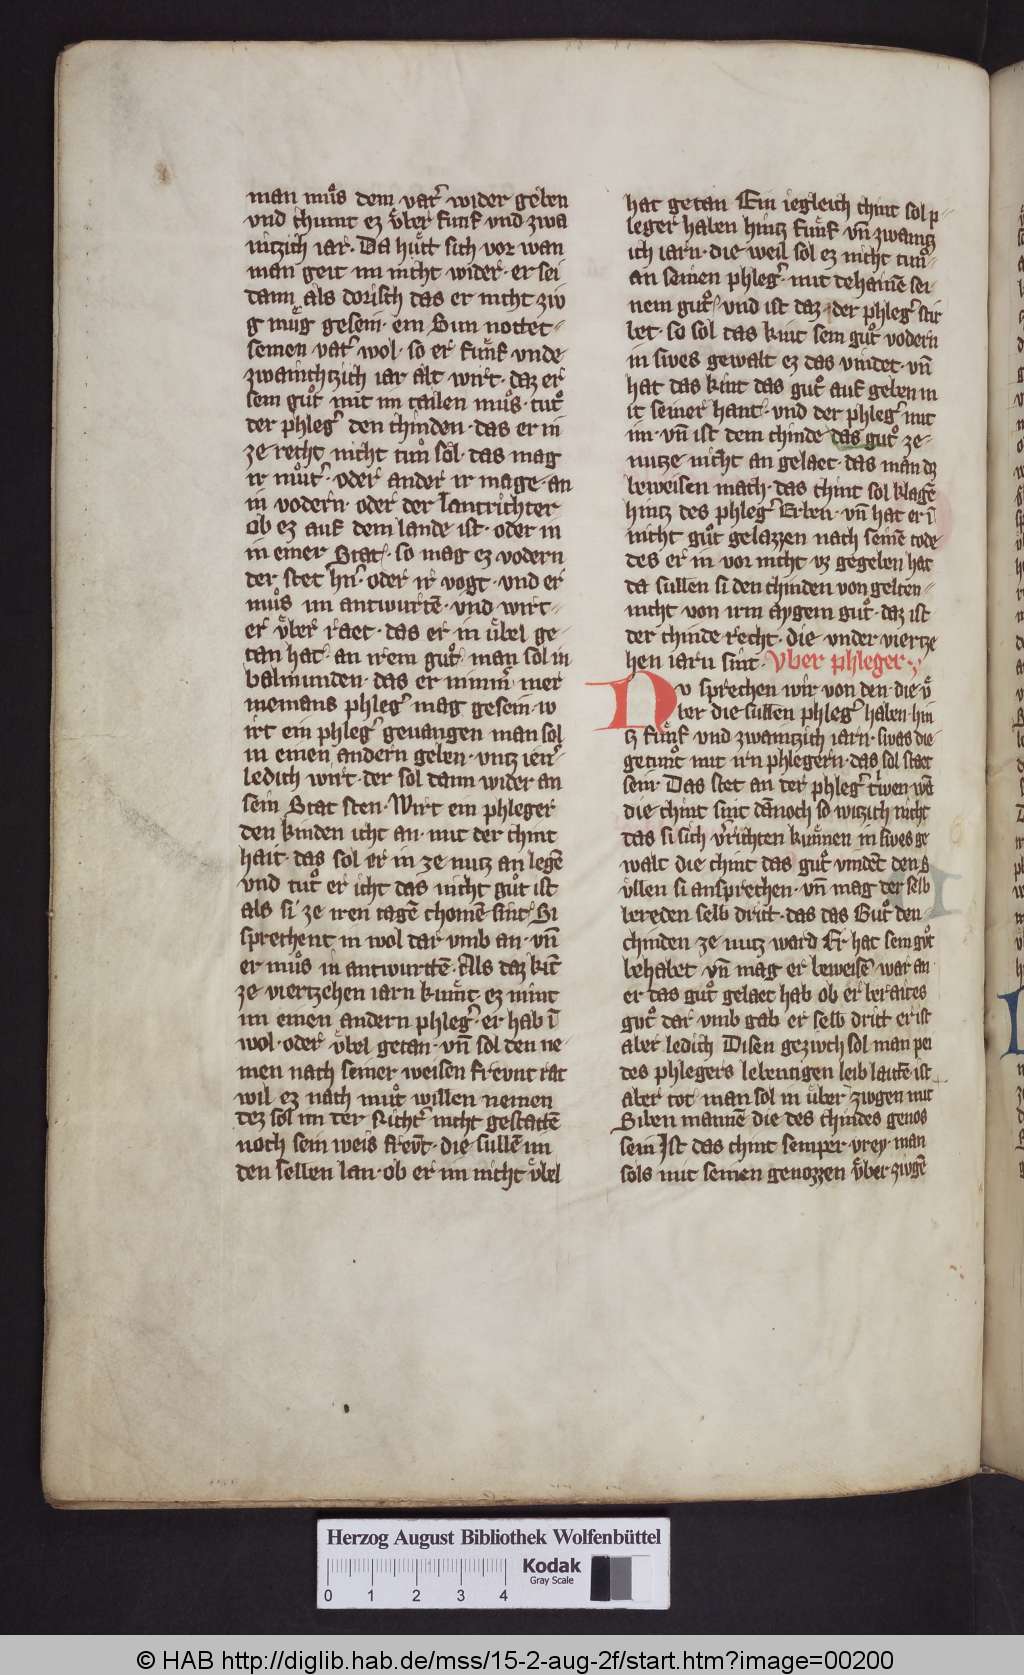 man muͦs dem vat͛ wider geben
vnd chumt ez vͤber funf vnd zwa
intzich iar· Da huͤtt sich vor wan
man geit im nicht wider· er sei
dann als dorisch das er nicht ziv
g muͤg gesein· ein Sun nottet-
seinen vat͛ wol· so er fuͤnf vnde
zwainchtzich iar alt wirt· daz er
sein guͦt mit im tailen muͦs· tuͦt
der phleg͛ den chinden· das er in
ze recht nicht tuͦn sol· das mag
ir muͦt͛· oder ander ir mage· an
in vodern· oder der lantrichter
ob ez auf dem lande ist· oder in
in einer Stat· so mag ez vodern
der stet h͛r· oder ir vogt· vnd er
muͦs im antwurtē· vnd wirt-
er vͤber raet· das er in uͤbel ge-
tan hat· an irem guͦt· man sol in
balmunden· das er nimm͛ mer
niemans phleg͛ mag gesein· w
irt ein phleg͛ geuangen man sol
in einen andern geben· vntz ien͛
ledich wirt· der sol dann wider an
sein Stat sten· Wirt ein phleger
den kinden icht an· mit der chint
hait· das sol er in ze nutz an legē
vnd tuͦt er icht das nicht guͦt ist
als si ze iren tagē chomē sint· Si
sprechent in wol dar vmb an· vn̄
er muͦs in antwurttē· Als daz kīt
ze viertzehen iarn kumͤt ez nimt
im einen andern phleg͛· er hab ī
wol· oder vͤbel getan· vn̄ sol den ne-
men nach seiner weisen frevnt rat
wil ez nach muͦt willen nemen
dez sol im der Richt͛ nicht gestattē
noch sein weis frevͤt· die sullē im
den selben lan· ob er im nicht vͤbel
hat getan Ein iegleich chint sol p-
leger haben hintz fuͤnf vn̄ zwaintz
ich iarn· die weil sol ez nicht tuͦn-
an seinen phleg͛· mit dehainē sei-
nem guͦt· vnd ist daz· der phleg͛ stir
bet· so sol das kint sein guͦt vodern
in swes gewalt ez das vindet· vn̄
hat das kint das guͦt auf geben m
it seiner hant· vnd der phleg͛ mit
im· vn̄ ist dem chinde das guͦt ze-
nutze nicht an gelaet· das man dz
beweisen mach· das chint sol klagē
hintz des phleg͛ Erben· vn̄ hat er ī
nicht guͦt gelazzen nach seinē tode
des er in vor nicht vz gegeben hat
da sullen si den chinden von gelten-
nicht von irm aygem guͦt· daz ist
der chinde recht· die vnder viertze
hen iarn sint· Vber phleger·
Nv sprechen wir von den· die vͤ
ber die sullen phleg͛ haben· hin
tz fuͤnf vnd zwaintzich iarn· swas die
getunͦt mit irn phlegern· das sol staet
sein· Das stet an der phleg͛ triwen wā
die chint sint dānoch so witzich nicht
das si sich v͛richten kunͤnen in swes ge
walt die chint das guͦt vindēt den s
vllen si ansprechen· vn̄ mag der selb
bereden selb dritt· das das Guͦt den
chinden ze nutz ward Er hat sein gvͦt
behabet vn̄ mag er beweisē war an
er das guͦt gelaet hab ob er beraites
gvͦt dar vmb gab er selb dritt er ist
aber ledich Disen gezivch sol man pei
des phlegers lebentigen leib laitē ist
aber tot man sol in uͤber zivgen mit
Siben mannē die des chindes genos
sein Ist das chint semper vrey· man
sols mit seinen genozzen vͤber zivgē
Herzog August Bibliothek Wolfenbüttel
Kodak
Gray Scale
0 1 2 3 4
© HAB http://diglib.hab.de/mss/15-2-aug-2f/start.htm?image=00200